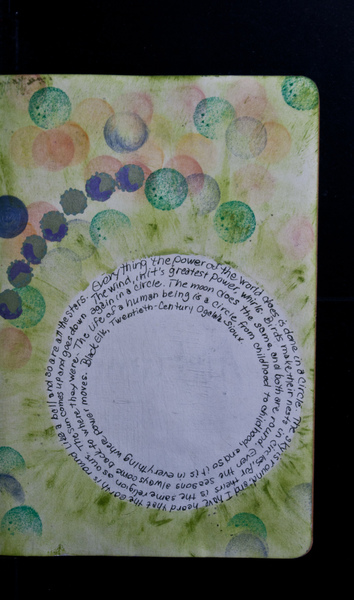 Everything the power of the world does is done in a circle. The sky is round and I have heard that the earth is round like a ball and so are all the stars.
The wind, in it's greatest power whirls. Birds make their nests in circles, for theirs is the same religion as ours. The sun comes up and goes down
again in a circle. The moon does the same, and both are round. Even the seasons always come back to where they were.
The life of a human being is a circle from childhood to childhood, and so it is in everything where power moves.
Black Elk, Twentieth-Century Oglala Sioux